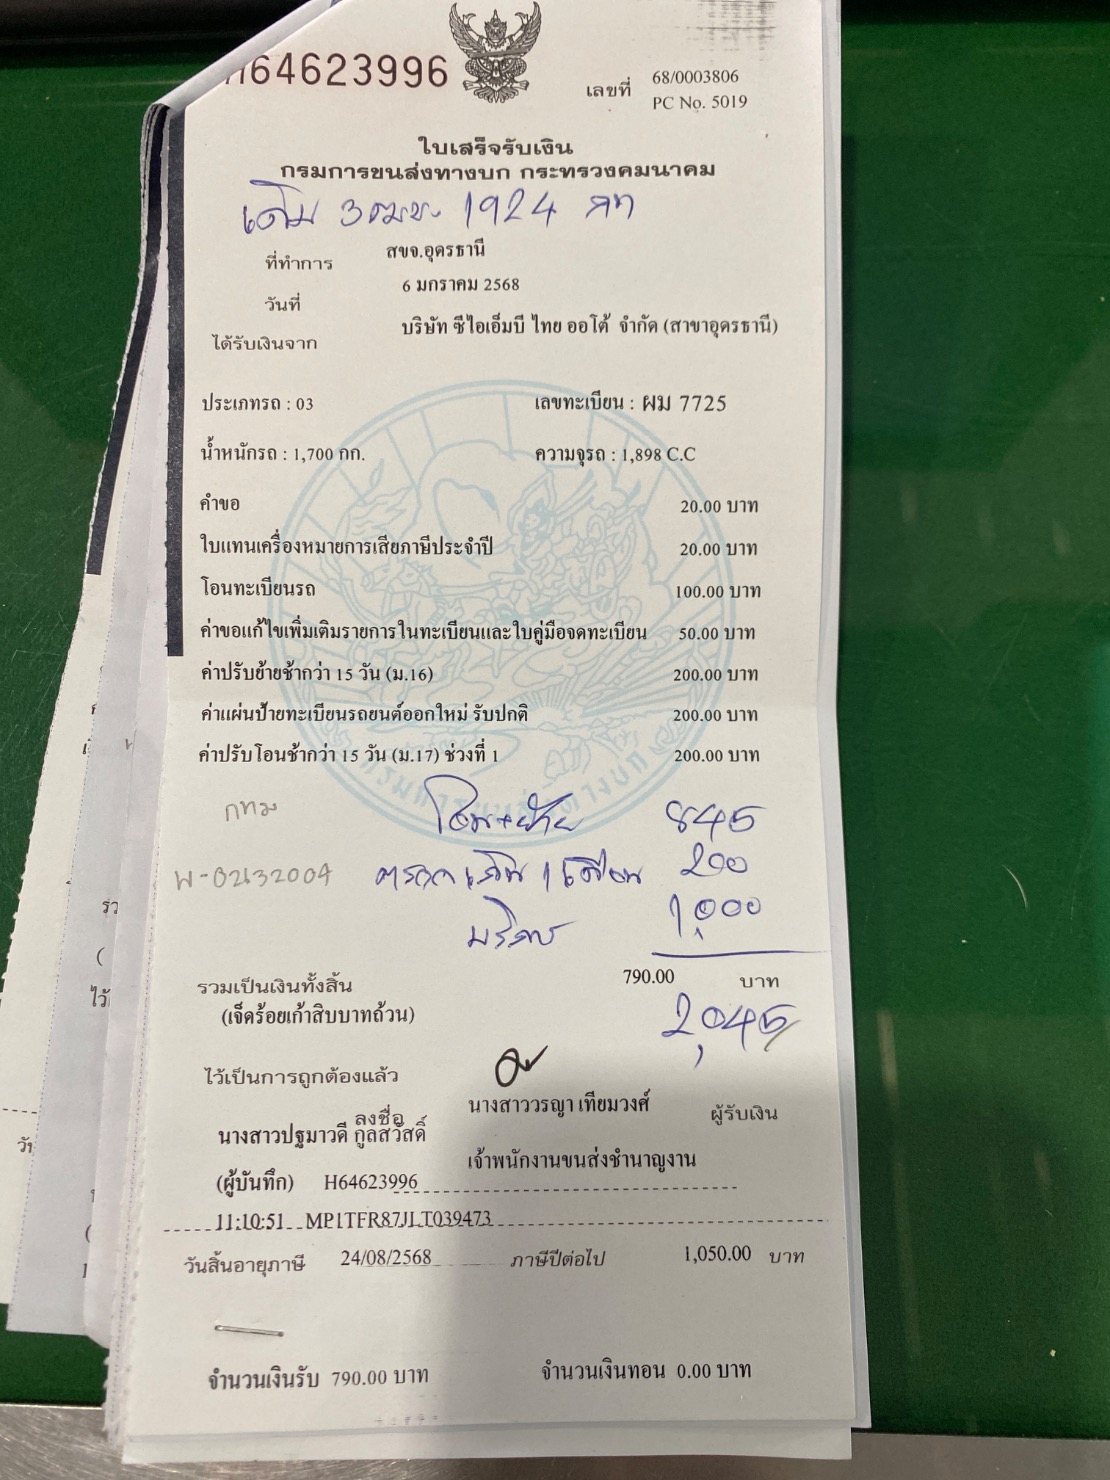 H64623996
เลขที่ 68/0003806
PC No. 5019
ใบเสร็จรับเงิน
กรมการขนส่งทางบก กระทรวงคมนาคม
เดิม 3ฒฆ 1924 กท
ที่ทำการ สขจ.อุดรธานี
วันที่ 6 มกราคม 2568
ได้รับเงินจาก บริษัท ซีไอเอ็มบี ไทย ออโต้ จำกัด (สาขาอุดรธานี)
ประเภทรถ : 03 เลขทะเบียน : ผม 7725
น้ำหนักรถ : 1,700 กก. ความจุรถ : 1,898 C.C
คำขอ 20.00 บาท
ใบแทนเครื่องหมายการเสียภาษีประจำปี 20.00 บาท
โอนทะเบียนรถ 100.00 บาท
ค่าขอแก้ไขเพิ่มเติมรายการในทะเบียนและใบคู่มือจดทะเบียน 50.00 บาท
ค่าปรับย้ายช้ากว่า 15 วัน (ม.16) 200.00 บาท
ค่าแผ่นป้ายทะเบียนรถยนต์ออกใหม่ รับปกติ 200.00 บาท
ค่าปรับโอนช้ากว่า 15 วัน (ม.17) ช่วงที่ 1 200.00 บาท
กทม โอน+ย้าย 845
พ-02132004 ตรวจ เกิน 1 เดือน 200
บริการ 1,000
รวมเป็นเงินทั้งสิ้น 790.00 บาท
(เจ็ดร้อยเก้าสิบบาทถ้วน) 2,045
ไว้เป็นการถูกต้องแล้ว
ลงชื่อ นางสาววรญา เทียมวงศ์ ผู้รับเงิน
นางสาวปฐมาวดี กูลสวัสดิ์
เจ้าพนักงานขนส่งชำนาญงาน
(ผู้บันทึก) H64623996
11:10:51 MP1TFR87JLT039473
วันสิ้นอายุภาษี 24/08/2568 ภาษีปีต่อไป 1,050.00 บาท
จำนวนเงินรับ 790.00 บาท จำนวนเงินทอน 0.00 บาท